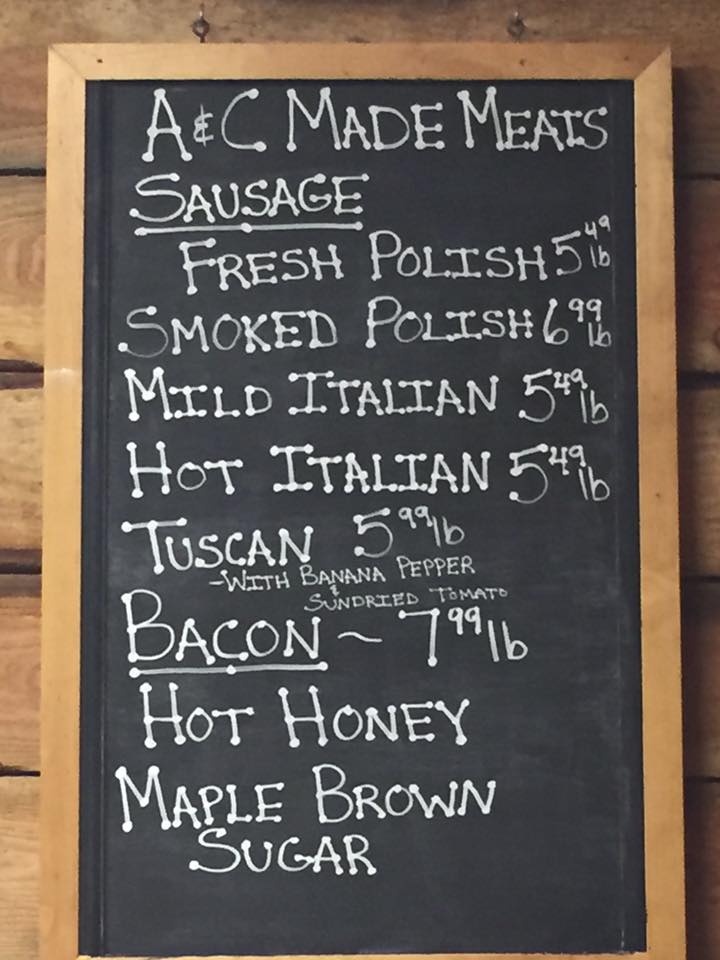 A & C MADE MEATS
SAUSAGE
FRESH POLISH 5 49 lb
SMOKED POLISH 6 99 lb
MILD ITALIAN 5 49 lb
HOT ITALIAN 5 49 lb
TUSCAN 5 99 lb
-WITH BANANA PEPPER
& SUNDRIED TOMATO
BACON ~ 7 99 lb
HOT HONEY
MAPLE BROWN
SUGAR